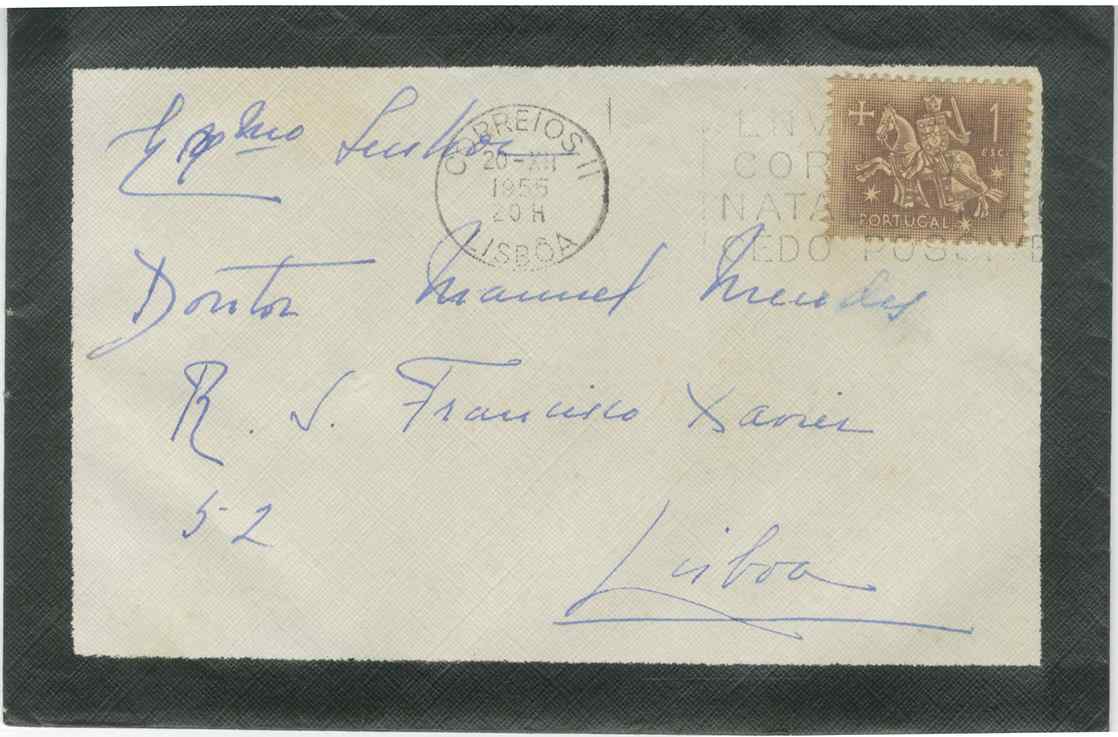 Exmo Senhor
CORREIOS II
20-XII
1955
20 H
LISBOA
ENV
COR
NATA
CEDO POSSIVE
1
ESC.
PORTUGAL
Doutor Manuel Mendes
R. S. Francisco Xavier
52
Lisboa